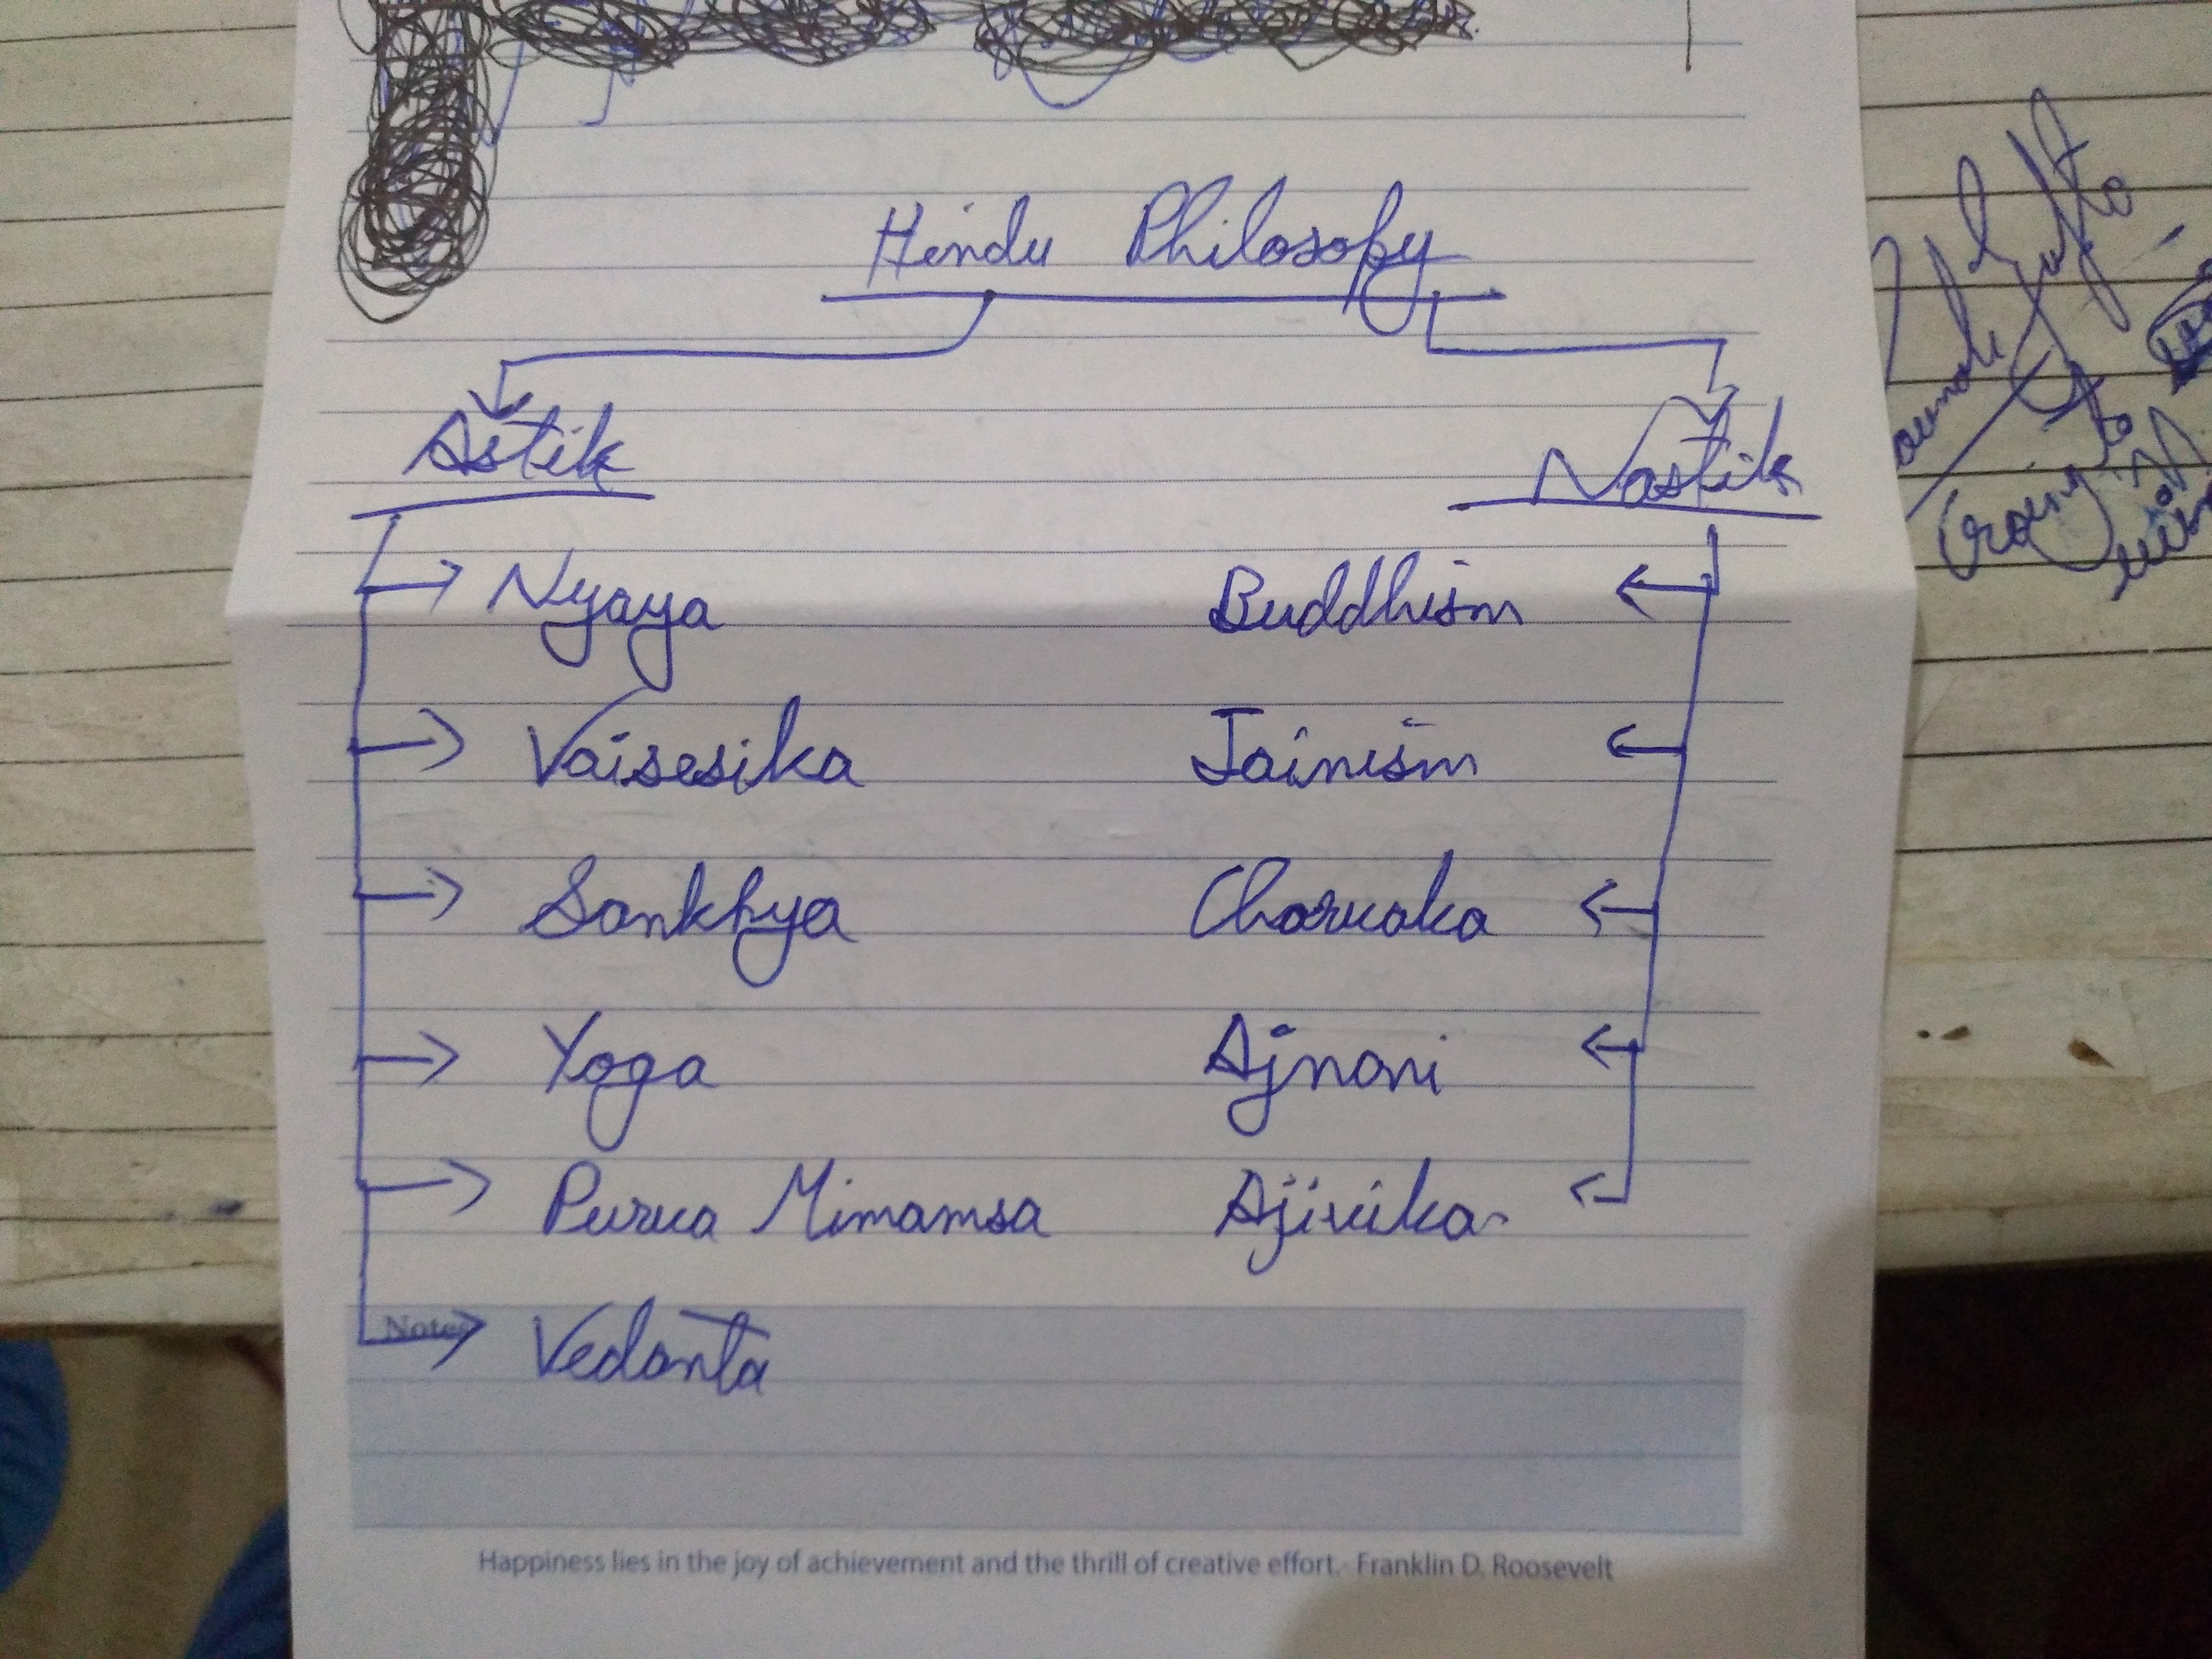 Hindu Philosopy
Astik
Nastik
Nyaya
Buddhism
Vaisesika
Jainism
Sankhya
Charvaka
Yoga
Ajnani
Purva Mimamsa
Ajivika
Notes
Vedanta
Happiness lies in the joy of achievement and the thrill of creative effort.- Franklin D. Roosevelt